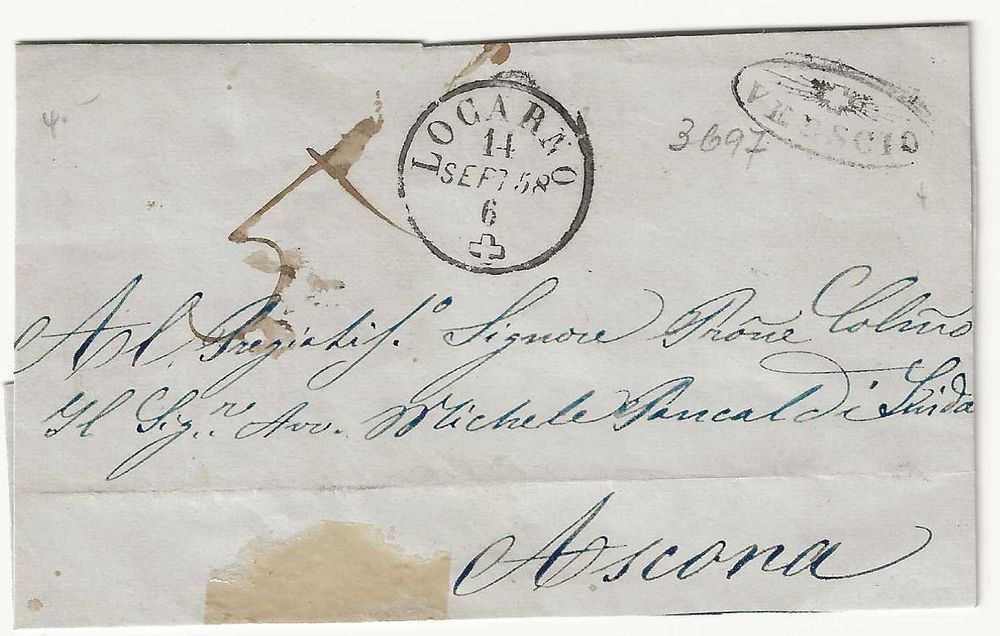 LOCARNO
14
SEPT 58
6
VERSCIO
3697
5
Al Pregiatis.º Signore Prōne Colm̃o
Il Sig.re Avv. Michele Pancaldi Guida
Ascona